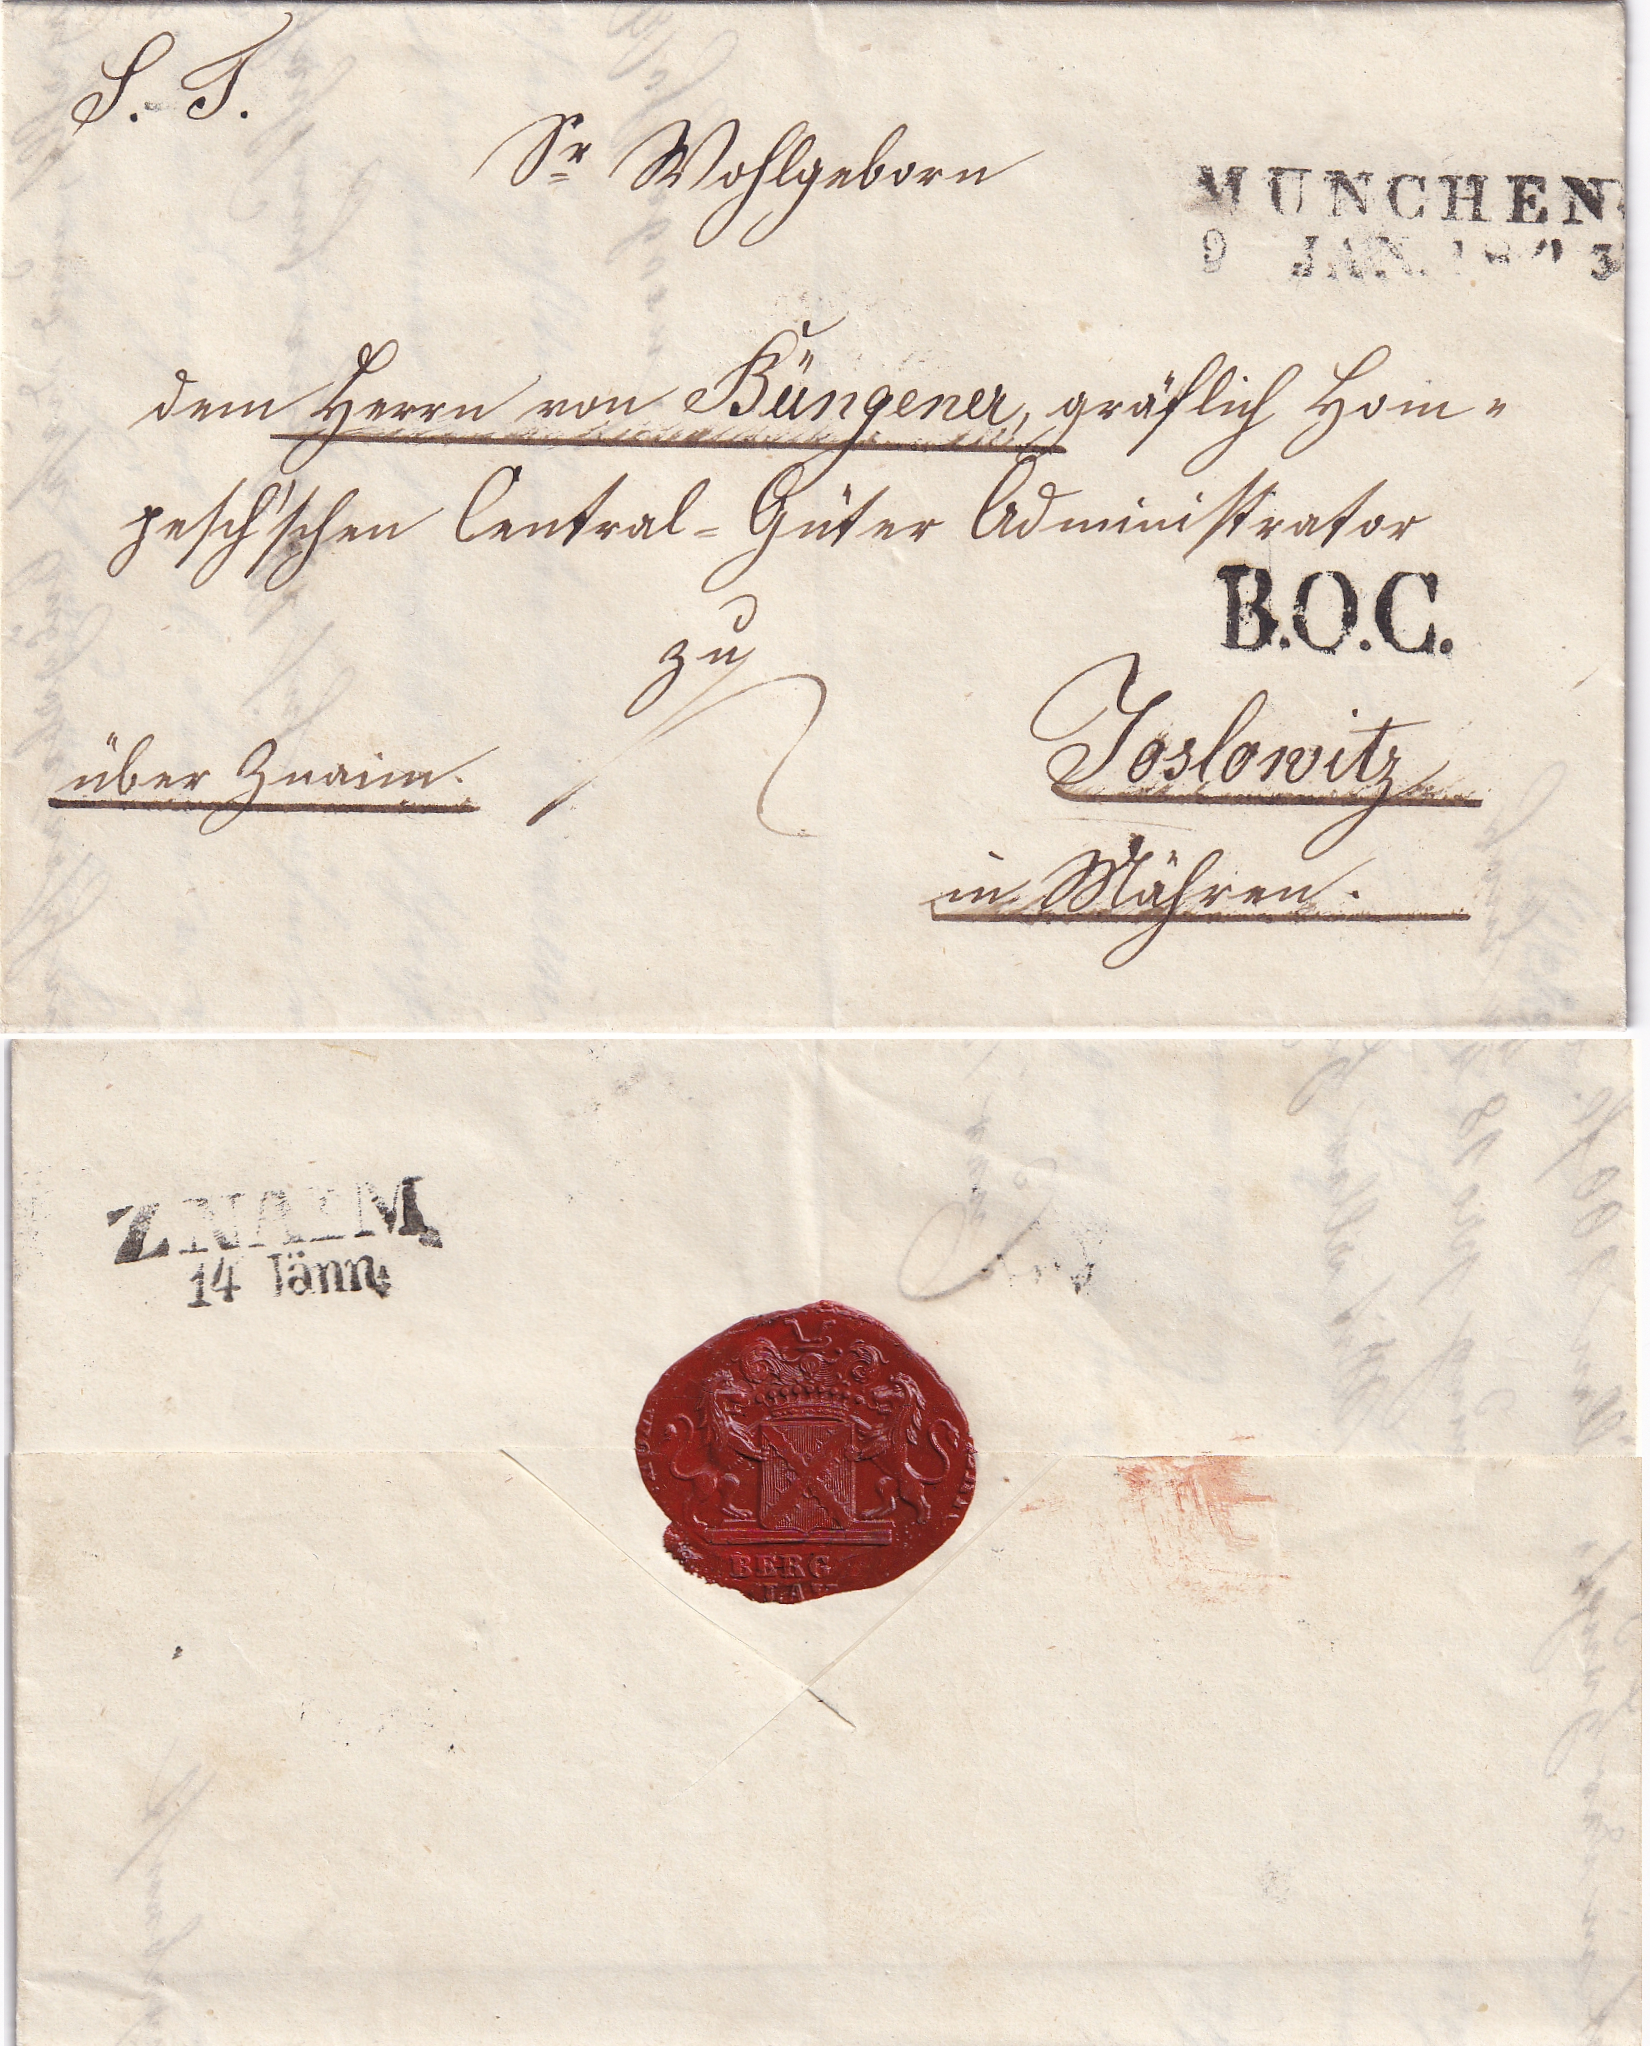 S. T.
Sr Wohlgeborn
MÜNCHEN
9 JAN. 18 3
dem Herrn von Büngener, gräflich Hom-
pesch'schen Central-Güter Administrator
B.O.C.
zu
Joslowitz
über Znaim.
in Mähren.
ZNAIM
14 Jänn.
BERG